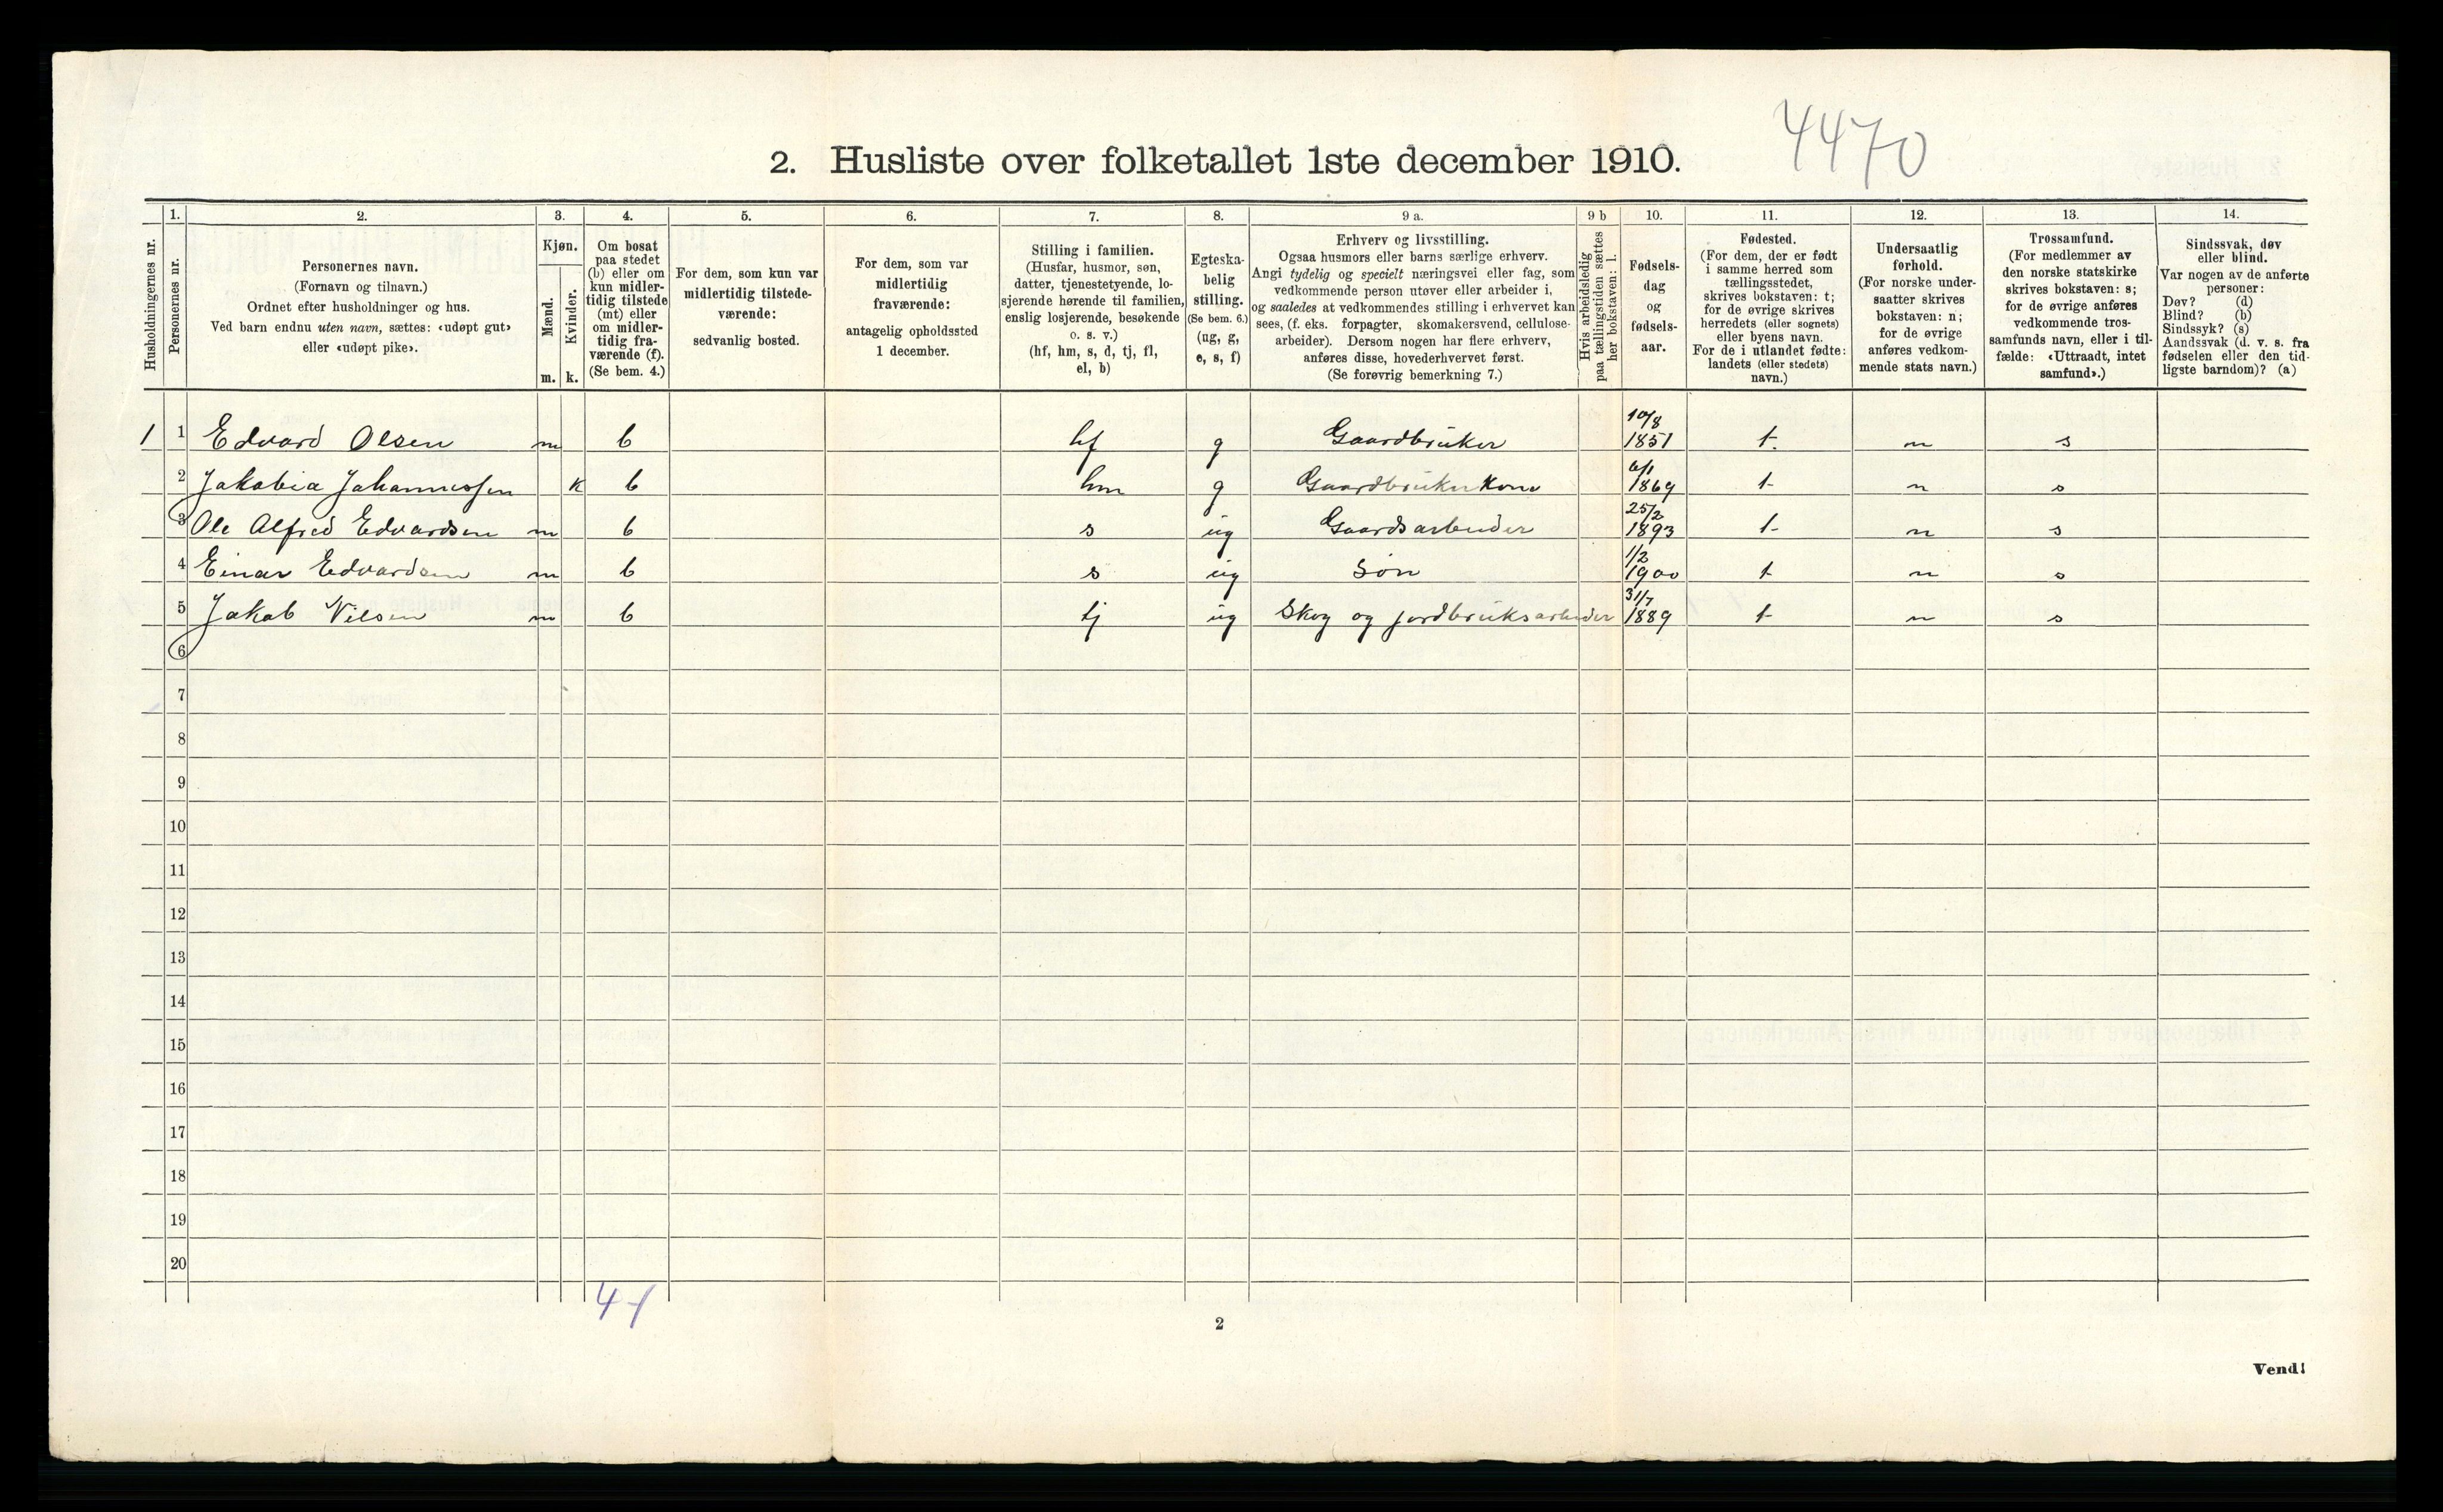 4470
2. Husliste over folketallet 1ste december 1910.
Husholdningernes nr.
1. Personernes nr.
2. Personernes navn.
(Fornavn og tilnavn.)
Ordnet efter husholdninger og hus.
Ved barn endnu uten navn, sættes: «udøpt gut»
eller «udøpt pike».
3. Kjøn.
Mænd. m.
Kvinder. k.
4. Om bosat
paa stedet
(b) eller om
kun midler-
tidig tilstede
(mt) eller
om midler-
tidig fra-
værende (f).
(Se bem. 4.)
5. For dem, som kun var
midlertidig tilstede-
værende:
sedvanlig bosted.
6. For dem, som var
midlertidig
fraværende:
antagelig opholdssted
1 december.
7. Stilling i familien.
(Husfar, husmor, søn,
datter, tjenestetyende, lo-
sjerende hørende til familien,
enslig losjerende, besøkende
o. s. v.)
(hf, hm, s, d, tj, fl,
el, b)
8. Egteska-
belig
stilling.
(Se bem. 6.)
(ug, g,
e, s, f)
9 a. Erhverv og livsstilling.
Ogsaa husmors eller barns særlige erhverv.
Angi tydelig og specielt næringsvei eller fag, som
vedkommende person utøver eller arbeider i,
og saaledes at vedkommendes stilling i erhvervet kan
sees, (f. eks. forpagter, skomakersvend, cellulose-
arbeider). Dersom nogen har flere erhverv,
anføres disse, hovederhvervet først.
(Se forøvrig bemerkning 7.)
9 b Hvis arbeidsledig
paa tællingstiden sættes
her bokstaven: l.
10. Fødsels-
dag
og
fødsels-
aar.
11. Fødested.
(For dem, der er født
i samme herred som
tællingsstedet,
skrives bokstaven: t;
for de øvrige skrives
herredets (eller sognets)
eller byens navn.
For de i utlandet fødte:
landets (eller stedets)
navn.)
12. Undersaatlig
forhold.
(For norske under-
saatter skrives
bokstaven: n;
for de øvrige
anføres vedkom-
mende stats navn.)
13. Trossamfund.
(For medlemmer av
den norske statskirke
skrives bokstaven: s;
for de øvrige anføres
vedkommende tros-
samfunds navn, eller i til-
fælde: «Uttraadt, intet
samfund».)
14. Sindssvak, døv
eller blind.
Var nogen av de anførte
personer:
Døv? (d)
Blind? (b)
Sindssyk? (s)
Aandssvak (d. v. s. fra
fødselen eller den tid-
ligste barndom)? (a)
1 1 Edvard Olsen m b hf g Gaardbruker 10/8 1851 t. n s
2 Jakobia Johannessen k b hm g Gaardbruker kone 6/1 1869 t n s
3 Ole Alfred Edvardsen m b s ug Gaardsarbeider 25/2 1893 t n s
4 Einar Edvardsen m b s ug Søn 1/2 1900 t n s
5 Jakob Nilsen m b tj ug Skog og jordbruksarbeider 31/7 1889 t n s
6
7
8
9
10
11
12
13
14
15
16
17
18
19
20
4-1
2
Vend!